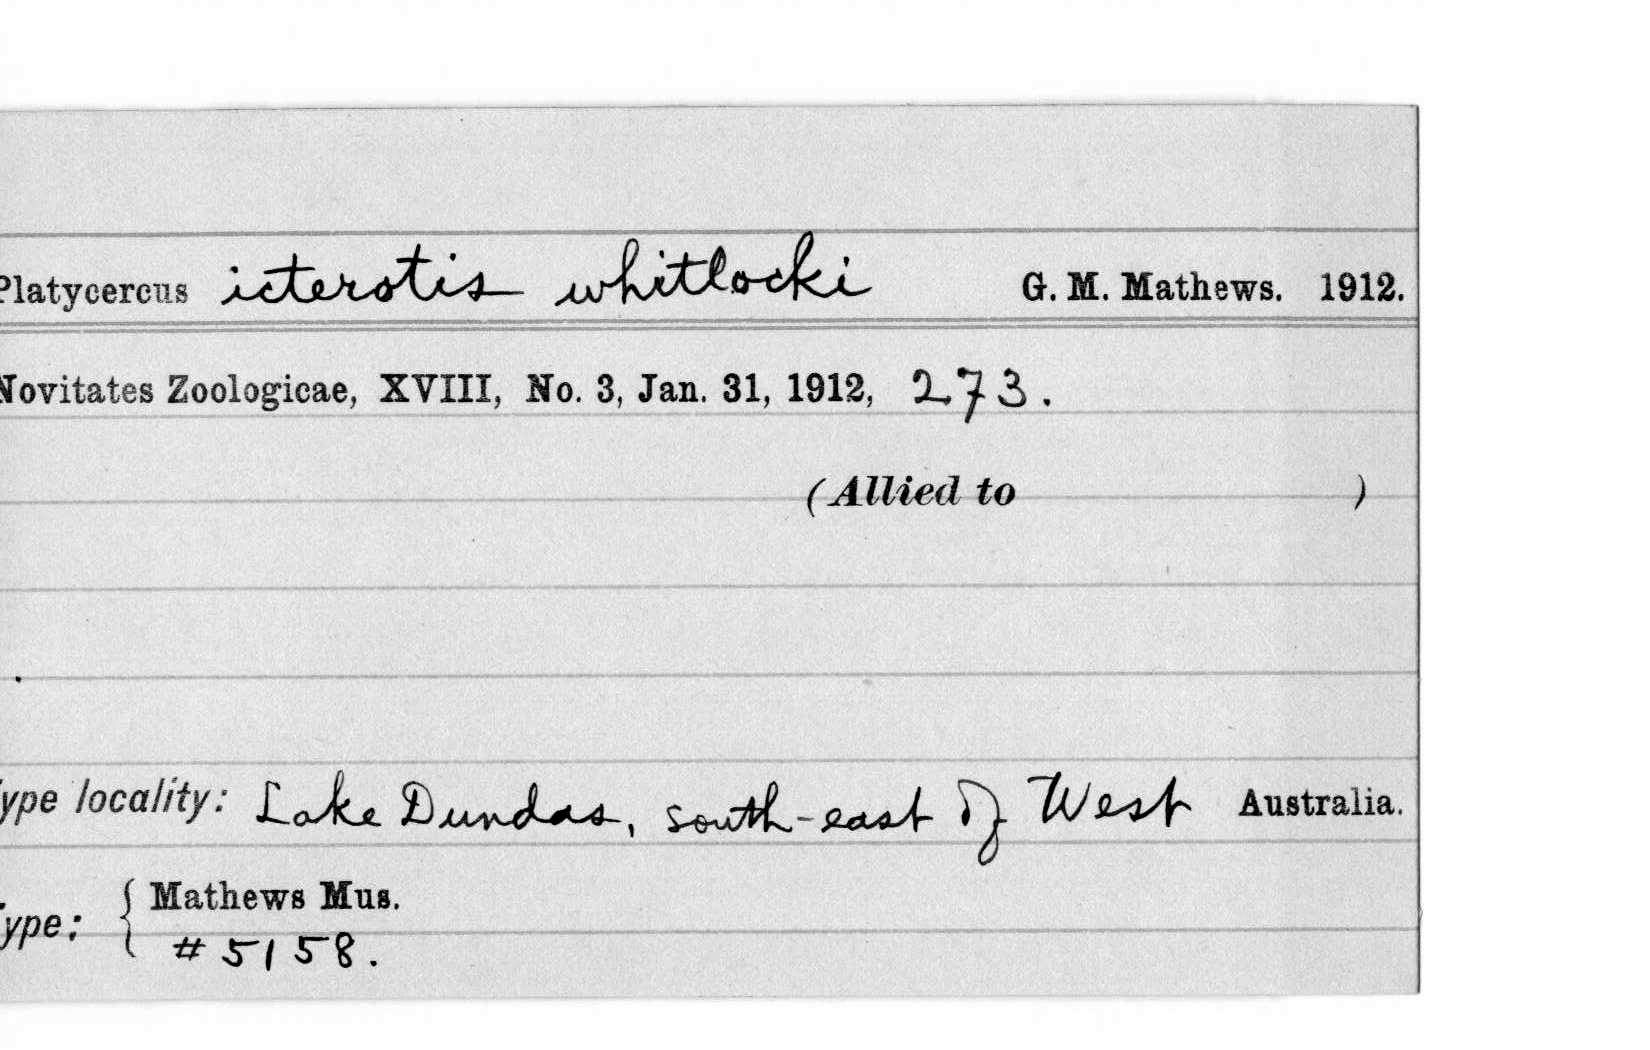 Platycercus icterotis whitlocki G. M. Mathews. 1912.
Novitates Zoologicae, XVIII, No. 3, Jan. 31, 1912, 273.
(Allied to )
ype locality: Lake Dundas, south-east of West Australia.
Mathews Mus.
ype:
#5158.